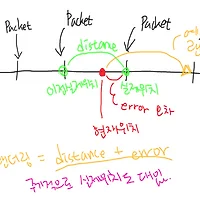 Packet
Packet
Packet
distance
이전실제위치
실제위치
error 오차
현재위치
distance + error
실제위치로 대입.